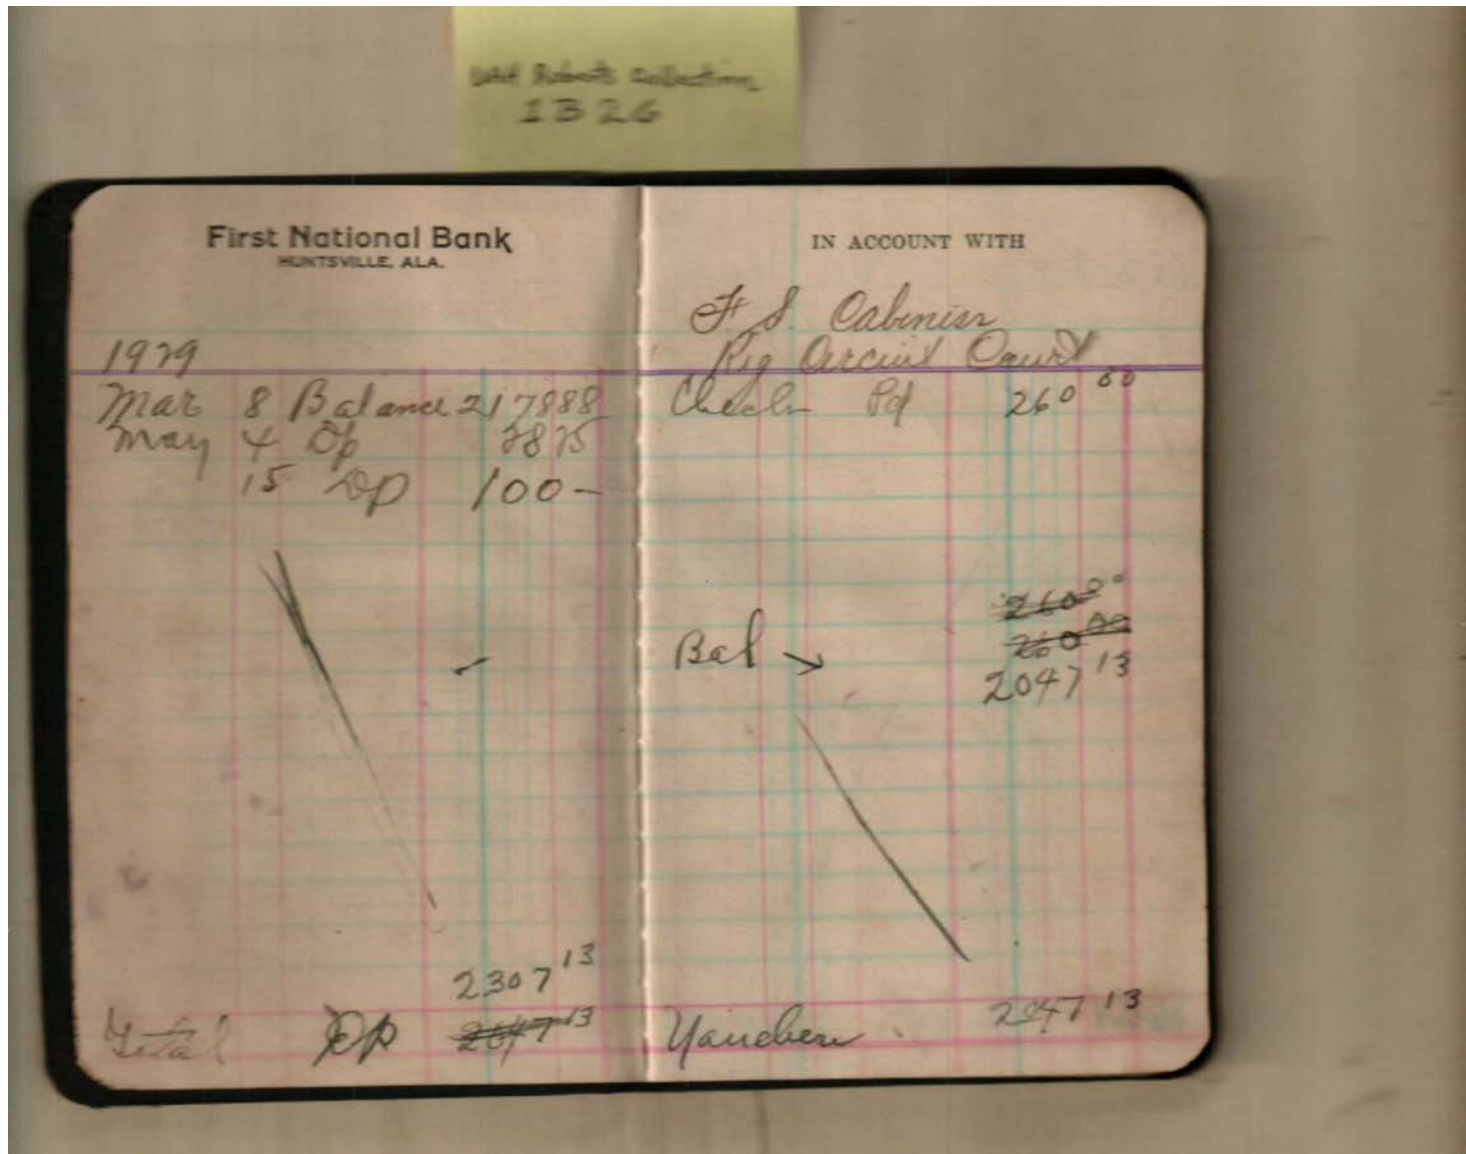 UAH Roberts Collection
1B26
First National Bank
HUNTSVILLE, ALA.
1929
Mar 8 Balance 217888
May 4 Dp 2825
15 Dp 100-
2307 13
Total Dp 2047 13
IN ACCOUNT WITH
F S Cabiniss
Reg Circuit Court
Checks Pd 260 00
260 00
260 00
Bal 2047 13
2047 13